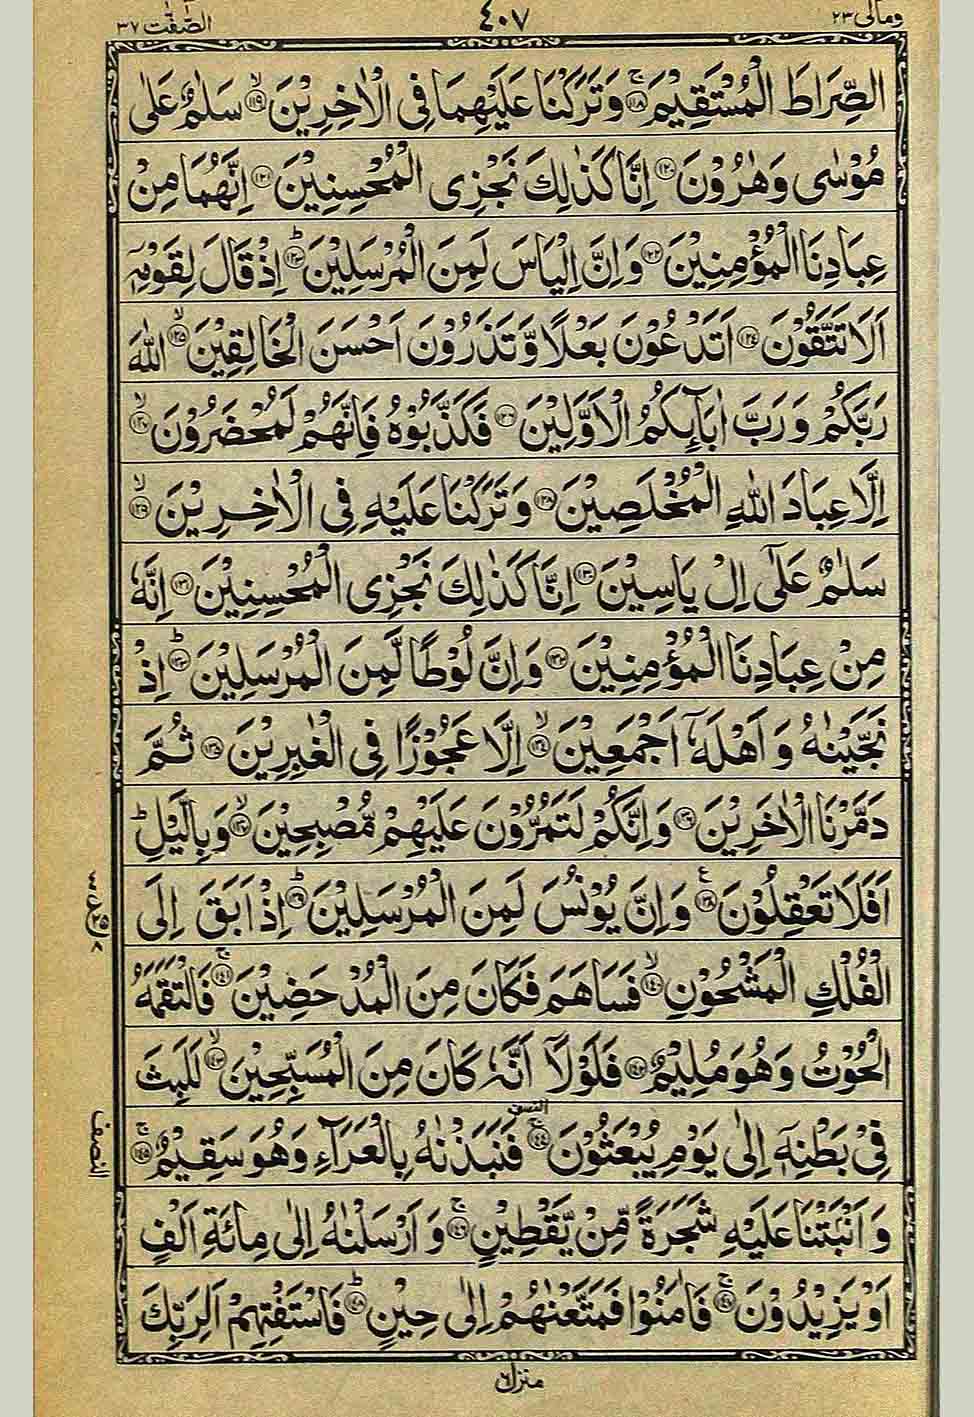 ومالی ۲۳
۴۰۷
الصّٰفّٰت ۳۷
الصِّرَاطَ الْمُسْتَقِيْمَ ۚ‏﴿۱۱۸﴾ وَتَرَكْنَا عَلَيْهِمَا فِى الْاٰخِرِيْنَ ۙ‏﴿۱۱۹﴾ سَلٰمٌ عَلٰى
مُوْسٰى وَهٰرُوْنَ ﴿۱۲۰﴾ اِنَّا كَذٰلِكَ نَجْزِى الْمُحْسِنِيْنَ ﴿۱۲۱﴾ اِنَّهُمَا مِنْ
عِبَادِنَا الْمُؤْمِنِيْنَ ﴿۱۲۲﴾ وَاِنَّ اِلْيَاسَ لَمِنَ الْمُرْسَلِيْنَ ؕ‏﴿۱۲۳﴾ اِذْ قَالَ لِقَوْمِهٖۤ
اَلَا تَتَّقُوْنَ ﴿۱۲۴﴾ اَتَدْعُوْنَ بَعْلًا وَّتَذَرُوْنَ اَحْسَنَ الْخَالِقِيْنَ ۙ‏﴿۱۲۵﴾ اللّٰهَ
رَبَّكُمْ وَرَبَّ اٰبَآئِكُمُ الْاَوَّلِيْنَ ﴿۱۲۶﴾ فَكَذَّبُوْهُ فَاِنَّهُمْ لَمُحْضَرُوْنَ ۙ‏﴿۱۲۷﴾
اِلَّا عِبَادَ اللّٰهِ الْمُخْلَصِيْنَ ﴿۱۲۸﴾ وَتَرَكْنَا عَلَيْهِ فِى الْاٰخِرِيْنَ ۙ‏﴿۱۲۹﴾
سَلٰمٌ عَلٰٓى اِلْ يَاسِيْنَ ﴿۱۳۰﴾ اِنَّا كَذٰلِكَ نَجْزِى الْمُحْسِنِيْنَ ﴿۱۳۱﴾ اِنَّهٗ
مِنْ عِبَادِنَا الْمُؤْمِنِيْنَ ﴿۱۳۲﴾ وَاِنَّ لُوْطًا لَّمِنَ الْمُرْسَلِيْنَ ؕ‏﴿۱۳۳﴾ اِذْ
نَجَّيْنٰهُ وَاَهْلَهٗۤ اَجْمَعِيْنَ ۙ‏﴿۱۳۴﴾ اِلَّا عَجُوْزًا فِى الْغٰبِرِيْنَ ﴿۱۳۵﴾ ثُمَّ
دَمَّرْنَا الْاٰخَرِيْنَ ﴿۱۳۶﴾ وَاِنَّكُمْ لَتَمُرُّوْنَ عَلَيْهِمْ مُّصْبِحِيْنَ ۙ‏﴿۱۳۷﴾ وَبِالَّيْلِ ؕ
اَفَلَا تَعْقِلُوْنَ ۧ‏﴿۱۳۸﴾ وَاِنَّ يُوْنُسَ لَمِنَ الْمُرْسَلِيْنَ ؕ‏﴿۱۳۹﴾ اِذْ اَبَقَ اِلَى
الْفُلْكِ الْمَشْحُوْنِ ۙ‏﴿۱۴۰﴾ فَسَاهَمَ فَكَانَ مِنَ الْمُدْحَضِيْنَ ۚ‏﴿۱۴۱﴾ فَالْتَقَمَهُ
الْحُوْتُ وَهُوَ مُلِيْمٌ ﴿۱۴۲﴾ فَلَوْلَاۤ اَنَّهٗ كَانَ مِنَ الْمُسَبِّحِيْنَ ۙ‏﴿۱۴۳﴾ لَلَبِثَ
فِىْ بَطْنِهٖۤ اِلٰى يَوْمِ يُبْعَثُوْنَ ۚ‏﴿۱۴۴﴾ فَنَبَذْنٰهُ بِالْعَرَآءِ وَهُوَ سَقِيْمٌ ۚ‏﴿۱۴۵﴾
النصف
وَاَنْۢبَتْنَا عَلَيْهِ شَجَرَةً مِّنْ يَّقْطِيْنٍ ۚ‏﴿۱۴۶﴾ وَاَرْسَلْنٰهُ اِلٰى مِائَةِ اَلْفٍ
اَوْ يَزِيْدُوْنَ ۚ‏﴿۱۴۷﴾ فَاٰمَنُوْا فَمَتَّعْنٰهُمْ اِلٰى حِيْنٍ ؕ‏﴿۱۴۸﴾ فَاسْتَفْتِهِمْ اَلِرَبِّكَ
منزل ۶